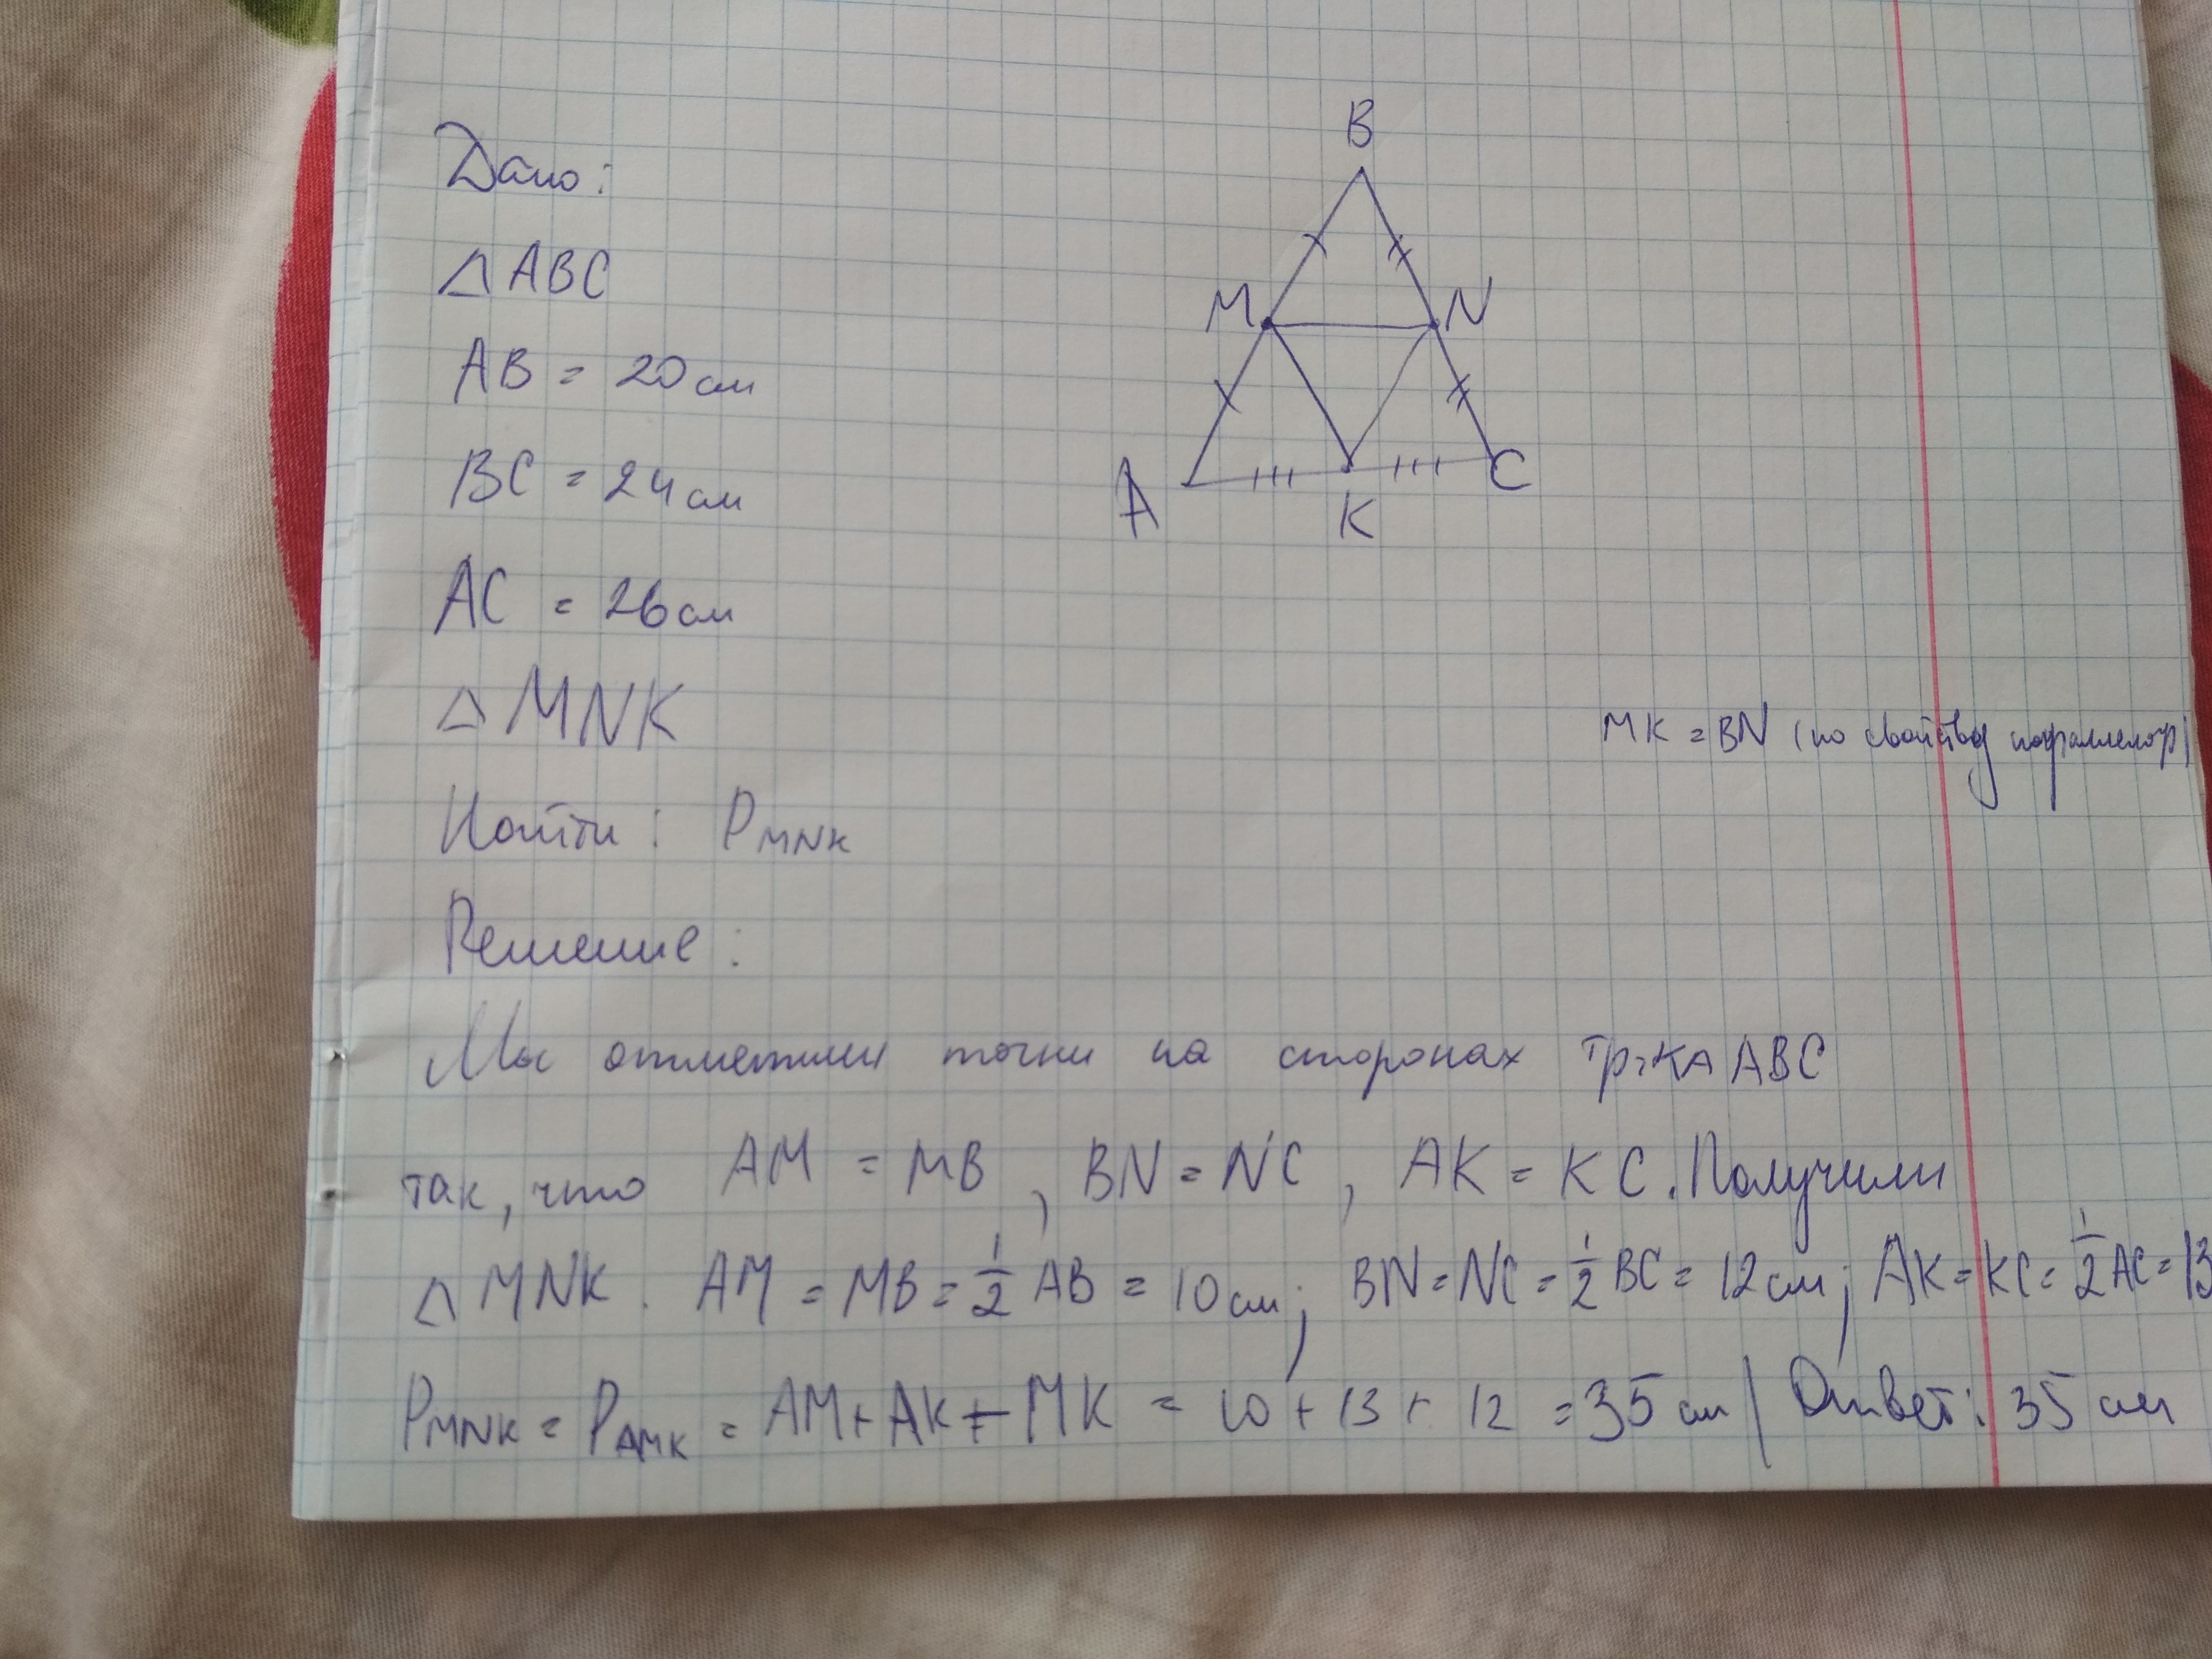 Дано:
△ ABC
AB = 20 см
BC = 24 см
AC = 26 см
△ MNK
Найти: P MNK
B
M
N
A
K
C
MK = BN (по свойству параллелогр)
Решение:
Мы отметили точки на сторонах тр-ка ABC
так, что AM = MB, BN = NC, AK = KC. Получили
△ MNK. AM = MB = 1/2 AB = 10 см; BN = NC = 1/2 BC = 12 см; AK = KC = 1/2 AC = 13
P MNK = P AMK = AM + AK + MK = 10 + 13 + 12 = 35 см | Ответ: 35 см